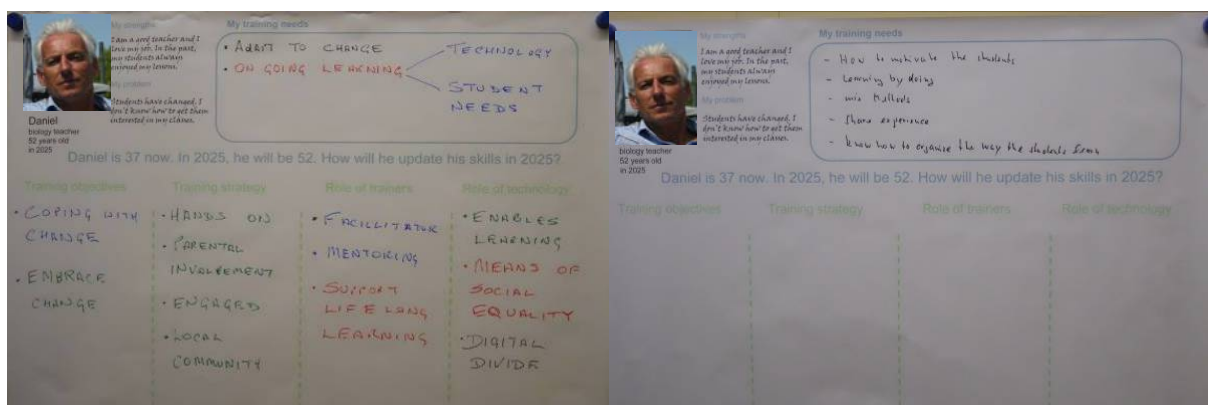 My strengths
I am a good teacher and I
love my job. In the past,
my students always
enjoyed my lessons.
My problem
Students have changed. I
don't know how to get them
interested in my classes.
Daniel
biology teacher
52 years old
in 2025
My training needs
• ADAPT TO CHANGE
• ON GOING LEARNING
TECHNOLOGY
STUDENT
NEEDS
Daniel is 37 now. In 2025, he will be 52. How will he update his skills in 2025?
Training objectives
• COPING WITH
CHANGE
• EMBRACE
CHANGE
Training strategy
• HANDS ON
• PARENTAL
INVOLVEMENT
• ENGAGED
• LOCAL
COMMUNITY
Role of trainers
• FACILLITATOR
• MENTORING
• SUPPORT
LIFE LONG
LEARNING
Role of technology
• ENABLES
LEARNING
• MEANS OF
SOCIAL
EQUALITY
• DIGITAL
DIVIDE
My strengths
I am a good teacher and I
love my job. In the past,
my students always
enjoyed my lessons.
My problem
Students have changed. I
don't know how to get them
interested in my classes.
biology teacher
52 years old
in 2025
My training needs
- How to motivate the students
- Learning by doing
- mix
- Share experience
- know how to organise the way the students
Daniel is 37 now. In 2025, he will be 52. How will he update his skills in 2025?
Training objectives
Training strategy
Role of trainers
Role of technology